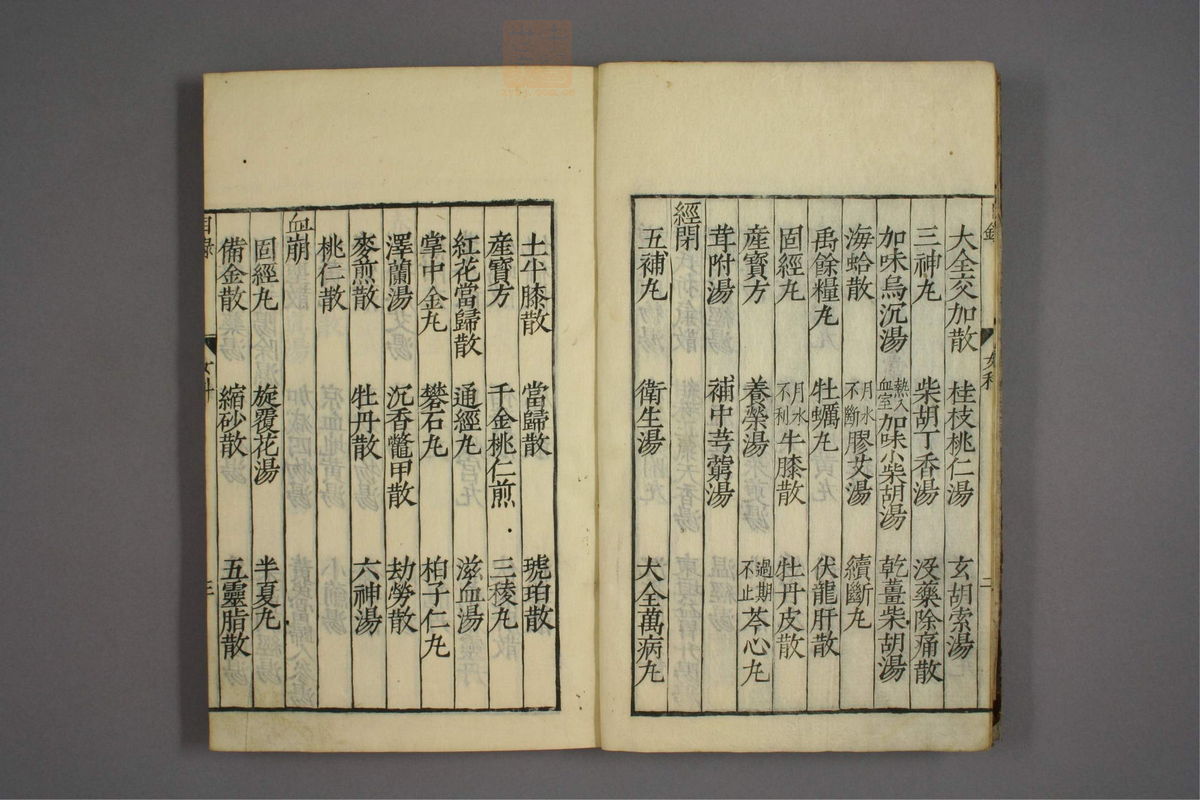 大全交加散　桂枝桃仁湯　玄胡索湯
三神丸　柴胡丁香湯　沒藥除痛散
加味烏沉湯　熱入血室加味小柴胡湯　乾薑柴胡湯
海蛤散　月水不斷膠艾湯　續斷丸
禹餘糧丸　牡蠣丸　伏龍肝散
固經丸　月水不利牛膝散　牡丹皮散
産寶方　養榮湯　過期不止芩心丸
茸附湯　補中芎藭湯
經閉
五補丸　衛生湯　大全萬病丸
土牛膝散　當歸散　琥珀散
産寶方　千金桃仁煎　三稜丸
紅花當歸散　通經丸　滋血湯
掌中金丸　礬石丸　柏子仁丸
澤蘭湯　沉香鼈甲散　劫勞散
麥煎散　牡丹散　六神湯
桃仁散
血崩
固經丸　旋覆花湯　半夏丸
備金散　縮砂散　五靈脂散
目錄　女科　三